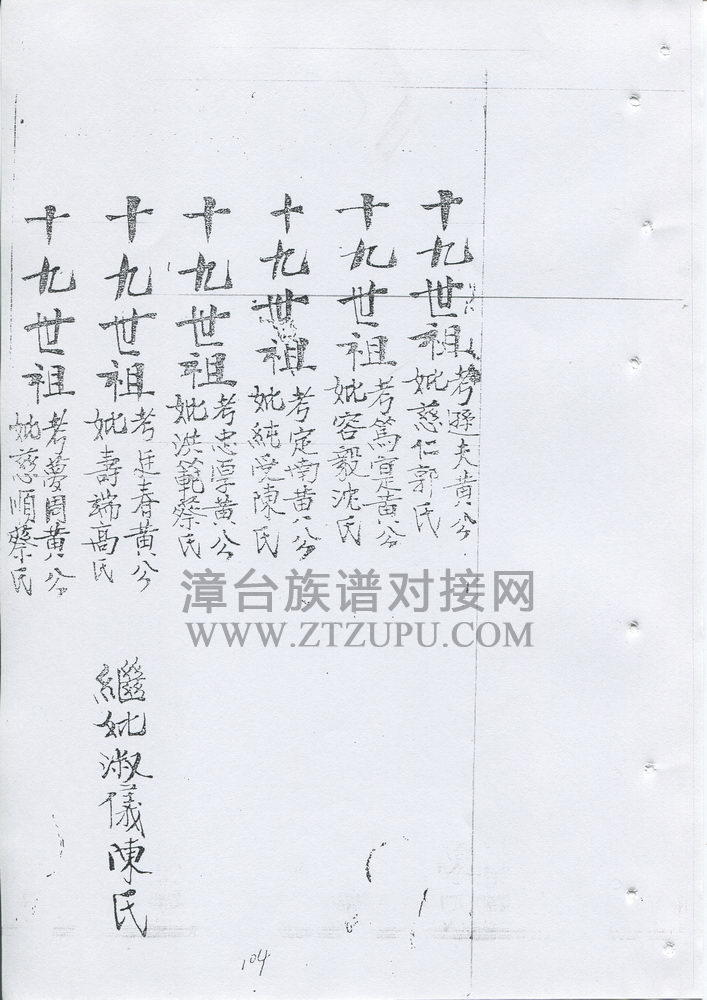 十九世祖
考遜夫黃公
妣慈仁郭氏
十九世祖
考篤寔黃公
妣容毅沈氏
十九世祖
考定南黃公
妣純受陳氏
十九世祖
考忠厚黃公
妣洪範蔡氏
十九世祖
考廷春黃公
妣壽端高氏
繼妣淑儀陳氏
十九世祖
考夢周黃公
妣慈順蔡氏
漳台族谱对接网
WWW.ZTZUPU.COM
104